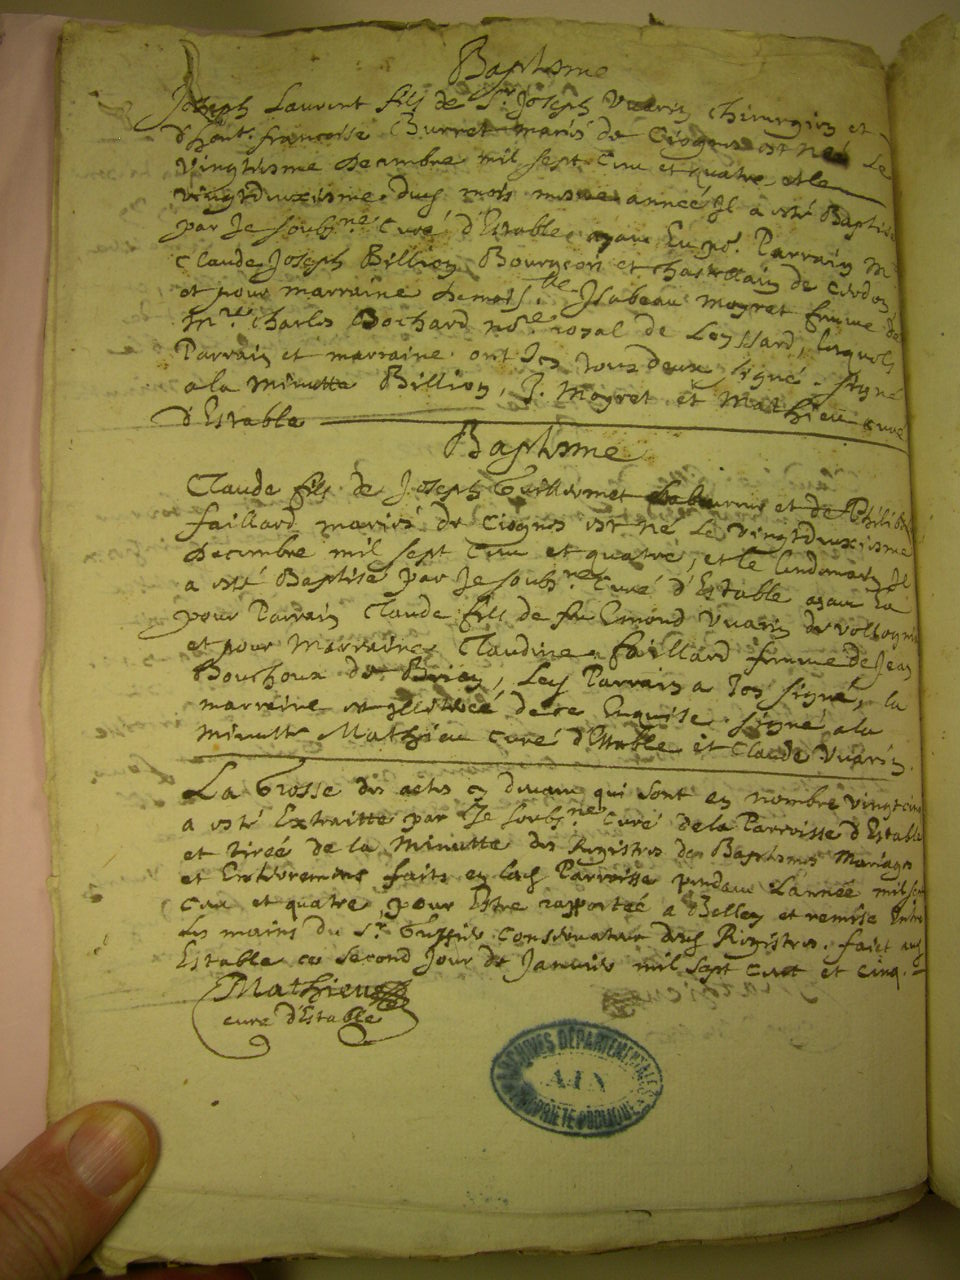 Baptisme
Joseph Laurent fils de Sr Joseph Vuarin Chirurgien et
d'hont francoise Burret mariés de Ciogna est né Le
Vingtiesme decembre mil sept cent et quatre, et le
vingtdeuxiesme dud mois mesme année Il a esté Baptisé
par Je soubné Curé d'Estable, ayant Eu pr Parrain Mr
Claude Joseph Billion Bourgeois et chastellain de Cordon
et pour marraine demoislle Isabeau moyret femme de
Mre Charles Bochard nore royal de Leyssard, lesquels
Parrain et marraine ont Icy tous deux signé. signé
a la minutte Billion, J. Moyret et Mathieu curé
d'Estable
Baptisme
Claude fils de Joseph Guillermet laboureur et de Philib
faillard mariés de Ciognes est né Le vingtdeuxiesme
decembre mil sept cent et quatre, et le lendemain Il
a esté Baptisé par Je soubné Curé d'Estable ayant Eu
pour Parrain Claude fils de fu Emond Vuarin de vollognia
et pour Marraine Claudine faillard femme de Jean
Bouchoux de Brion, Led Parrain a Icy signé, la
marraine est Illitrée de ce Enquise. signé a la
minutte Mathieu curé d'Estable et Claude Vuarin.
La Grosse des actes cy devant qui sont en nombre vingtcinq
a esté Extraitte par Je soubné Curé de la Parroisse d'Estable
et tireé de la Minutte des Registres des Baptismes Mariages
et Enterrements faits en lad Parroisse pendant L'année mil sept
cent et quatre, pour Estre rapporteé a Belley et remise Entre
les mains du Sr conservateur desd Registres. faict aud
Estable ce second Jour de Janvier mil sept cent et cinq.
Mathieu
curé d'Estable
ARCHIVES DÉPARTEMENTALES
AIN
PROPRIÉTÉ PUBLIQUE